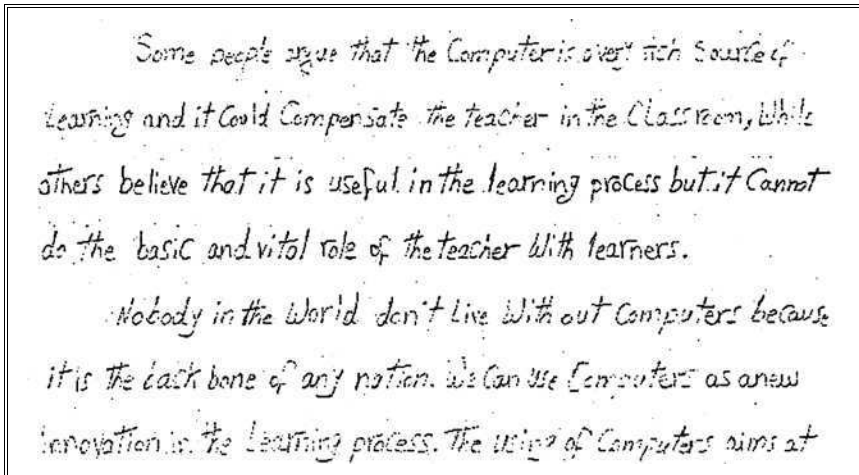 Some people argue that the Computer is avery rich Source of
Learning and it Could Compensate the teacher in the Classroom, While
others believe that it is useful in the learning process but it Cannot
do the basic and vital role of the teacher With learners.
Nobody in the World don't Live With out Computers because
it is the back bone of any nation. We Can use Computers as anew
innovation in the Learning process. The using of Computers aims at